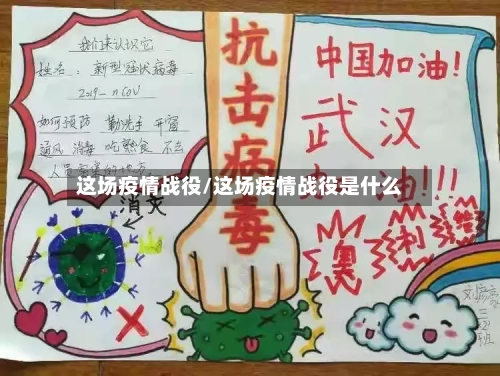 我们来认识它
姓名：新型冠状病毒
2019-nCoV
如何预防 勤洗手 开窗
通风 消毒 吃熟食 不去
人员密集的地方
消灭
抗击病毒
中国加油!
武汉
油!!!
这场疫情战役/这场疫情战役是什么
奥利给
三
班